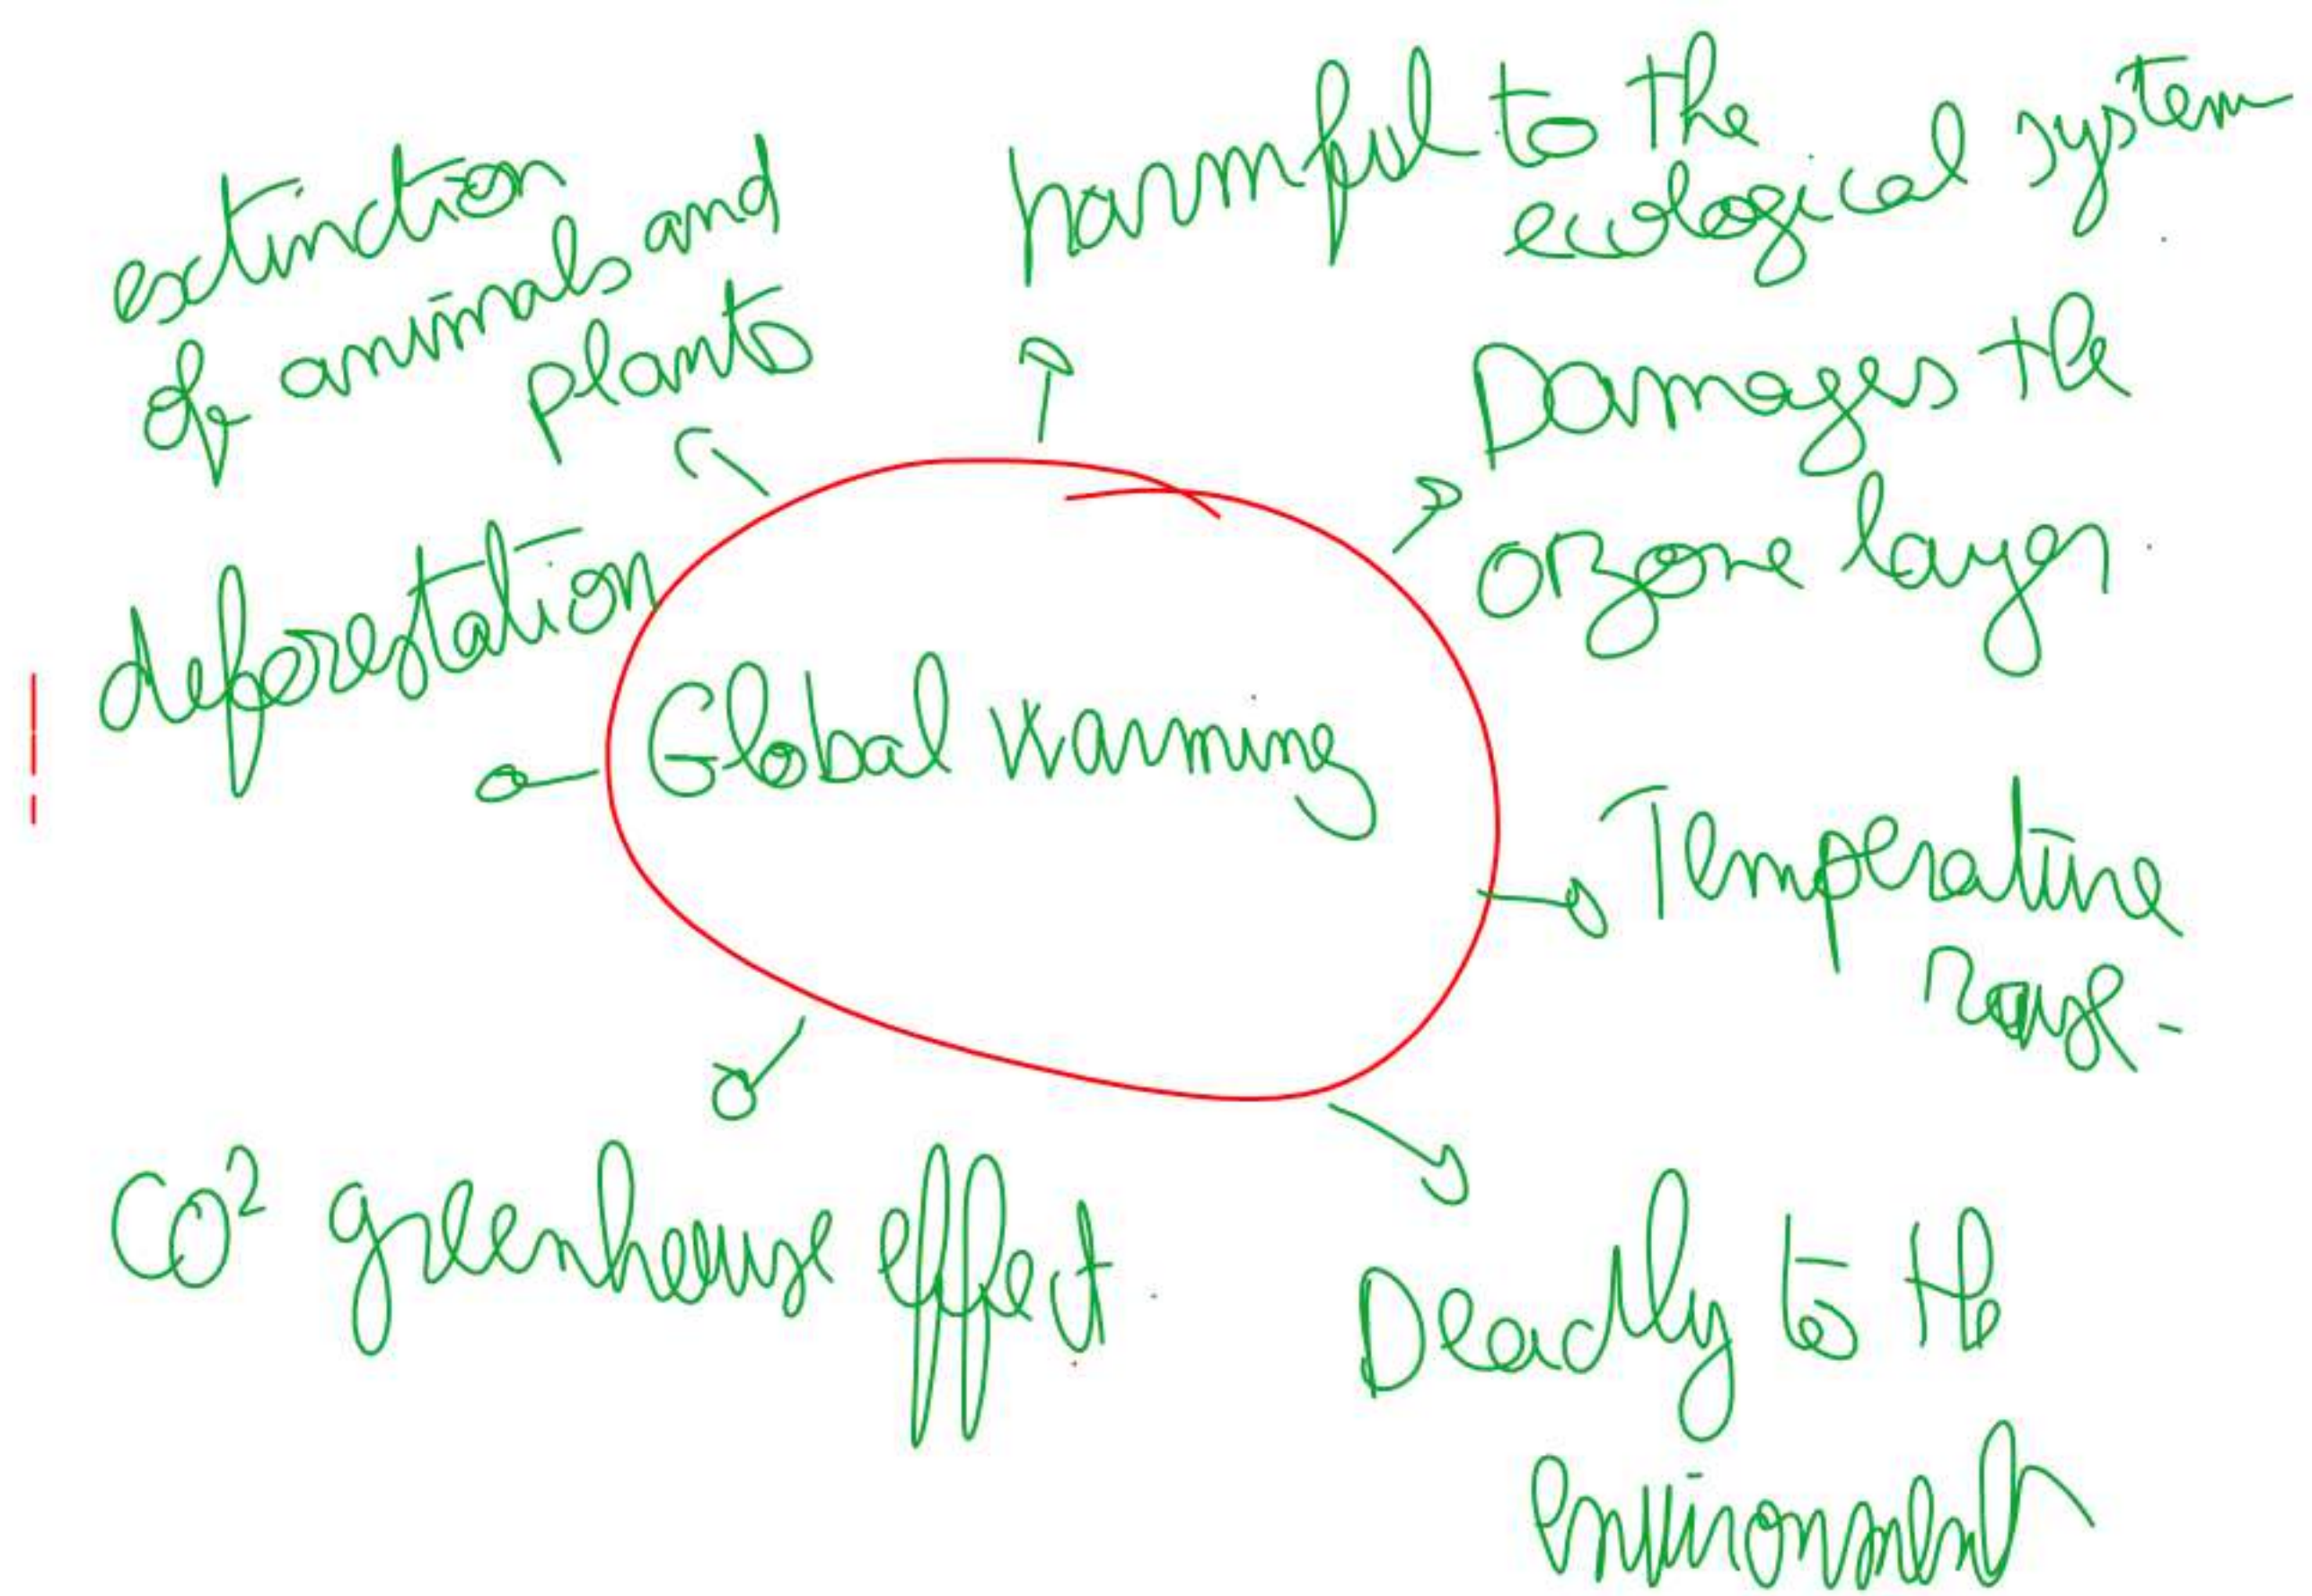 extinction
of animals and
plants
harmful to the
ecological system
Damages the
ozone layer
deforestation
Global warming
Temperature
CO² greenhouse effect
Deadly to the
environment